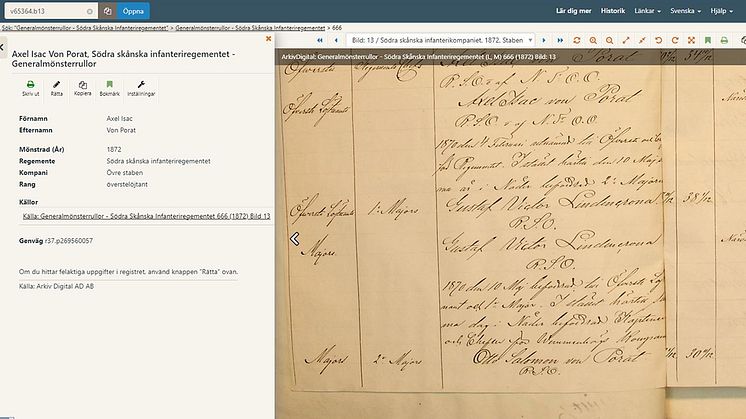 v65364.b13
Öppna
Lär dig mer Historik Länkar Svenska Hjälp
Sök: "Generalmönsterrullor - Södra Skånska Infanteriregementet" > Generalmönsterrullor - Södra Skånska Infanteriregementet > 666
Axel Isac Von Porat, Södra skånska infanteriregementet - Generalmönsterrullor
Skriv ut Rätta Kopiera Bokmärk Inställningar
Förnamn Axel Isac
Efternamn Von Porat
Mönstrad (År) 1872
Regemente Södra skånska infanteriregementet
Kompani Övre staben
Rang överstelöjtant
Källor
Källa: Generalmönsterrullor - Södra Skånska Infanteriregementet 666 (1872) Bild 13
Genväg r37.p269560057
Om du hittar felaktiga uppgifter i registret, använd knappen "Rätta" ovan.
Källa: Arkiv Digital AD AB
Bild: 13 / Södra skånska infanterikompaniet, 1872, Staben
ArkivDigital: Generalmönsterrullor - Södra Skånska Infanteriregementet (L, M) 666 (1872) Bild: 13
R.S.O. af N.S.O.O.
Axel Isac von Porat
R.S.O. af N.S.O.O.
1870 den
Regementet. I stället härtill den 10 Maj
ma år i Nåder befordrad 2:e Majoren
Gustaf Victor Lindencrona
R.S.O.
1:e Majors
Majors
Gustaf Victor Lindencrona
R.S.O.
1870 den 10 Maj befordrad till Öfverste Löjt
nant och 1:e Major. I stället härtill
ma dag i Nåder befordrad Kaptenen
och Chefen för
Majors 2:e Majors Otto Salomon von Porat
R.S.O.